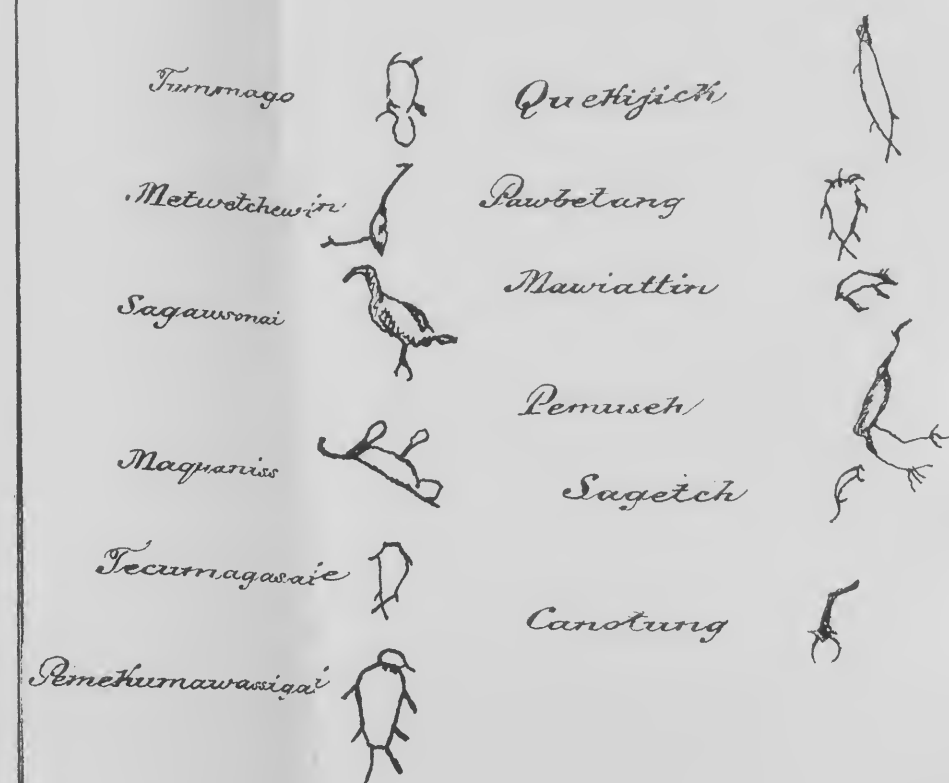 Tummago
Metwetchewin
Sagawsonai
Maquaniss
Tecumagasaie
Pemekumawassigai
Quekijick
Pawbetang
Mawiattin
Pemuseh
Sagetch
Canotung